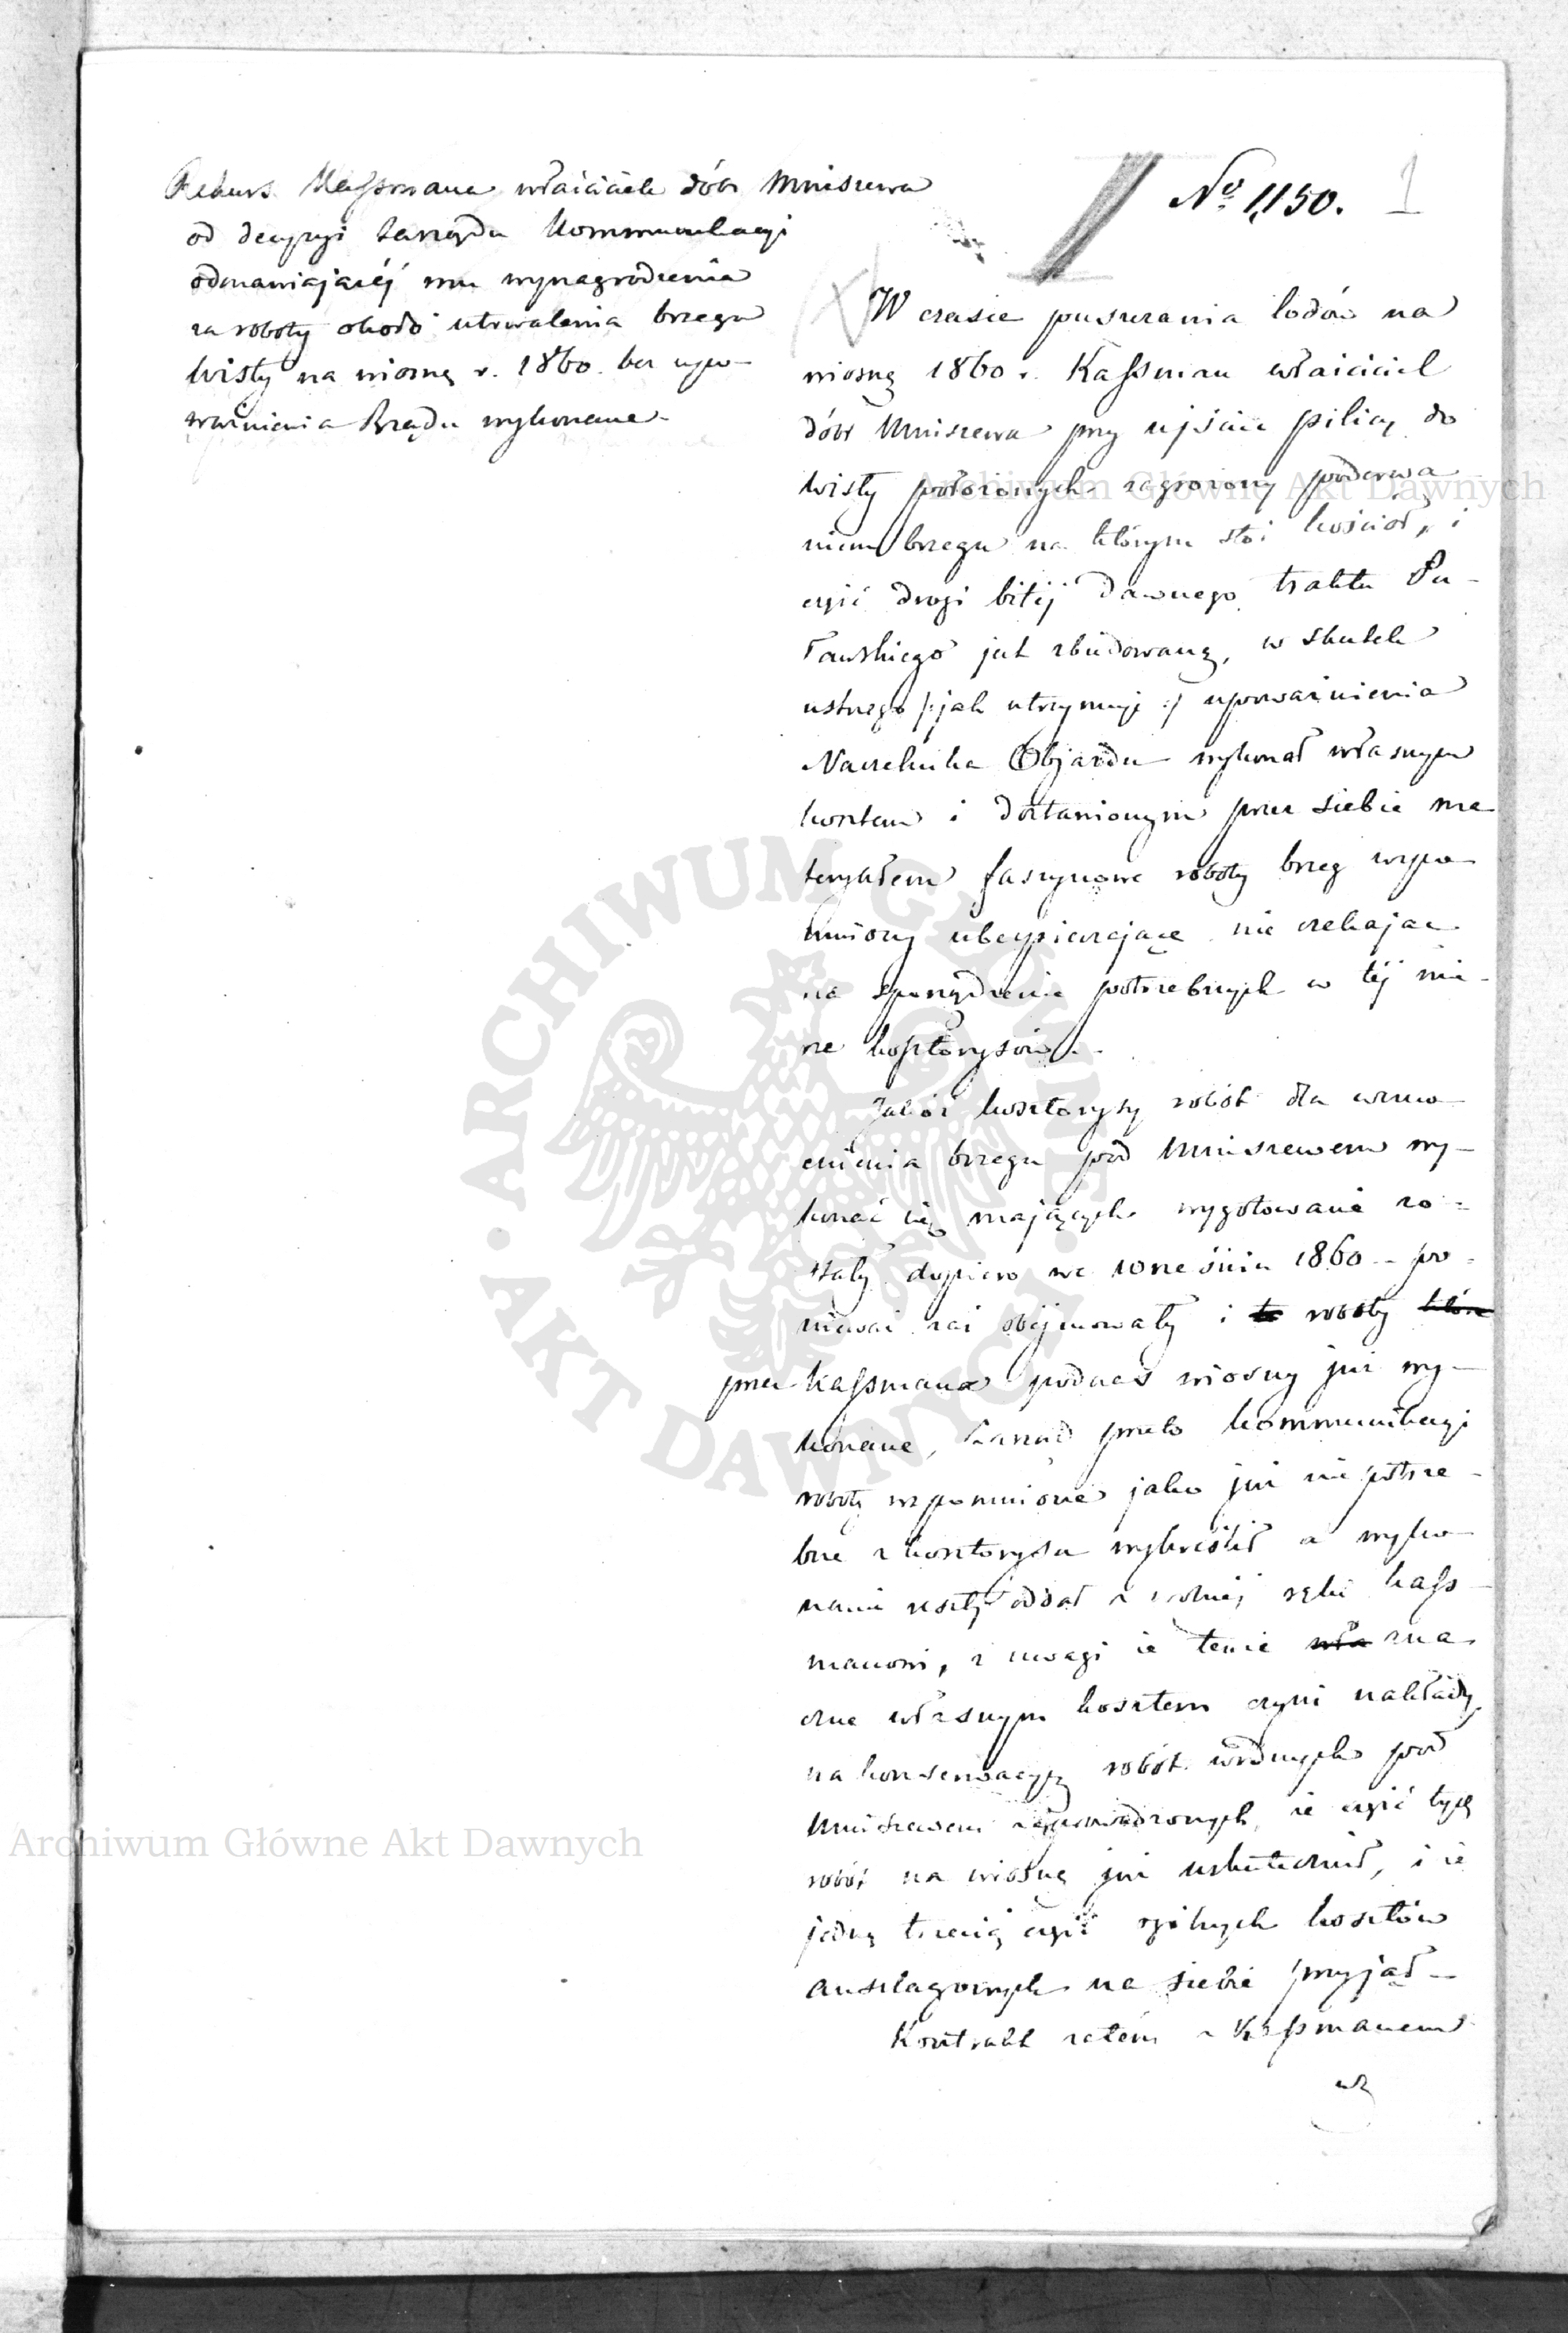 Rekurs Kassmana właściciela dóbr Mniszewa
od decyzyi Zarządu Kommunikacyi
odmawiającéj mu wynagrodzenia
za roboty około utrwalenia brzegu
Wisły na wiosnę r. 1860 bez upo-
ważnienia Rządu wykonane.
№ 1,150.
1
W czasie puszczania lodów na
wiosnę 1860 r. Kassman właściciel
dóbr Mniszewa przy ujściu pilicy do
Wisły położonych zagrożony poderwa
niem brzegu na którym stoi kościół, i
część drogi bitéj dawnego traktu Pu-
ławskiego jest zbudowaną, w skutek
ustnego /:jak utrzymuje:/ upoważnienia
Naczelnika Objazdu wykonał własnym
kosztem i dostawionym przez siebie ma
teryałem faszynowe roboty brzeg wspo
mniony ubezpieczające nie czekając
na sporządzenie potrzebnych w téj mie-
rze kosztorysów.
Jakoż kosztorysy robót dla wzmo
cnienia brzegu pod Mniszewem wy-
konać się mających wygotowane zo-
stały dopiero we wrześniu 1860 – po-
nieważ zaś obejmowały i te roboty które
przez Kassmana podczas wiosny już wy-
konane, Zarząd przeto kommunikacyi
roboty wspomnione jako już nie potrze-
bne z kosztorysu wykreślił a wyko
nanie reszty oddał z wolnéj ręki Kass-
manowi, z uwagi że tenże wła zna
czne własnym kosztem czyni nakłady
na konserwacyę robót wodnych pod
Mniszewem zaprowadzonych, że część tych
robót na wiosnę już uskutecznił, i że
jedną trzecią część ogólnych kosztów
anszlagowych na siebie przyjął –
Kontrakt zatem z Kassmanem
Archiwum Główne Akt Dawnych
ARCHIWUM GŁÓWNE
AKT DAWNYCH
Archiwum Główne Akt Dawnych